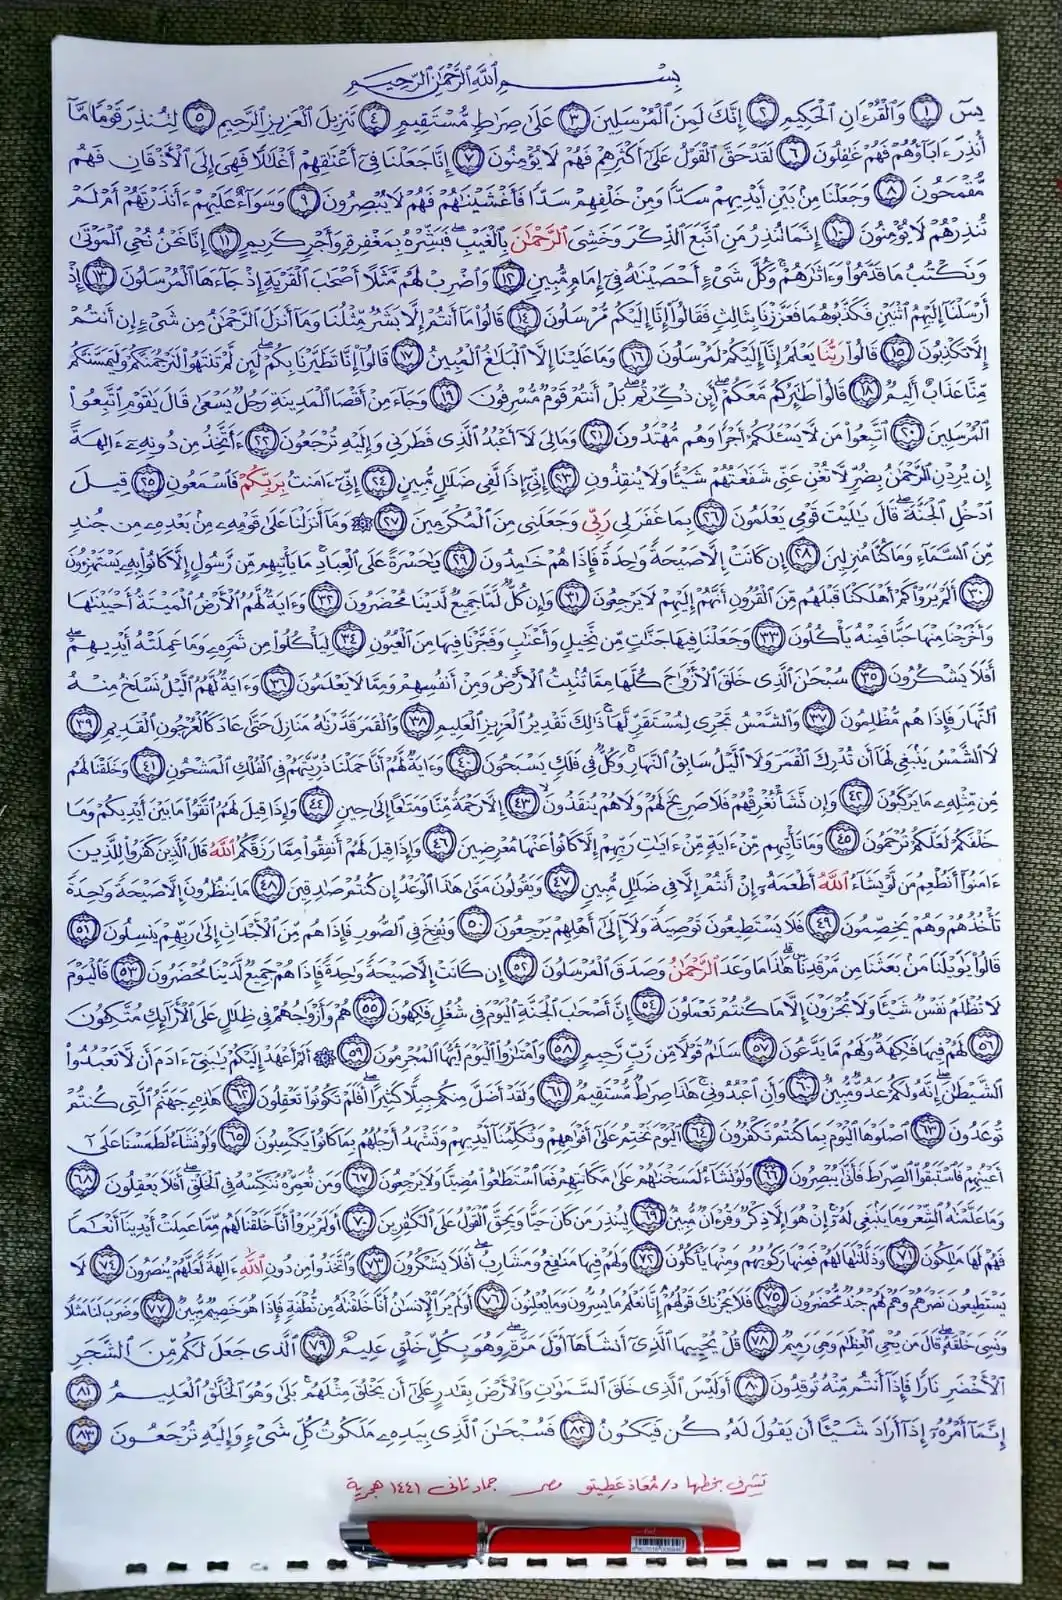 بِسْمِ ٱللَّهِ ٱلرَّحْمَٰنِ ٱلرَّحِيمِ
يسٓ ١ وَٱلْقُرْءَانِ ٱلْحَكِيمِ ٢ إِنَّكَ لَمِنَ ٱلْمُرْسَلِينَ ٣ عَلَىٰ صِرَٰطٍ مُّسْتَقِيمٍ ٤ تَنزِيلَ ٱلْعَزِيزِ ٱلرَّحِيمِ ٥ لِتُنذِرَ قَوْمًا مَّآ
أُنذِرَ ءَابَآؤُهُمْ فَهُمْ غَٰفِلُونَ ٦ لَقَدْ حَقَّ ٱلْقَوْلُ عَلَىٰٓ أَكْثَرِهِمْ فَهُمْ لَا يُؤْمِنُونَ ٧ إِنَّا جَعَلْنَا فِىٓ أَعْنَٰقِهِمْ أَغْلَٰلًا فَهِىَ إِلَى ٱلْأَذْقَانِ فَهُم
مُّقْمَحُونَ ٨ وَجَعَلْنَا مِنۢ بَيْنِ أَيْدِيهِمْ سَدًّا وَمِنْ خَلْفِهِمْ سَدًّا فَأَغْشَيْنَٰهُمْ فَهُمْ لَا يُبْصِرُونَ ٩ وَسَوَآءٌ عَلَيْهِمْ ءَأَنذَرْتَهُمْ أَمْ لَمْ
تُنذِرْهُمْ لَا يُؤْمِنُونَ ١٠ إِنَّمَا تُنذِرُ مَنِ ٱتَّبَعَ ٱلذِّكْرَ وَخَشِىَ ٱلرَّحْمَٰنَ بِٱلْغَيْبِ ۖ فَبَشِّرْهُ بِمَغْفِرَةٍ وَأَجْرٍ كَرِيمٍ ١١ إِنَّا نَحْنُ نُحْىِ ٱلْمَوْتَىٰ
وَنَكْتُبُ مَا قَدَّمُوا۟ وَءَاثَٰرَهُمْ ۚ وَكُلَّ شَىْءٍ أَحْصَيْنَٰهُ فِىٓ إِمَامٍ مُّبِينٍ ١٢ وَٱضْرِبْ لَهُم مَّثَلًا أَصْحَٰبَ ٱلْقَرْيَةِ إِذْ جَآءَهَا ٱلْمُرْسَلُونَ ١٣ إِذْ
أَرْسَلْنَآ إِلَيْهِمُ ٱثْنَيْنِ فَكَذَّبُوهُمَا فَعَزَّزْنَا بِثَالِثٍ فَقَالُوٓا۟ إِنَّآ إِلَيْكُم مُّرْسَلُونَ ١٤ قَالُوا۟ مَآ أَنتُمْ إِلَّا بَشَرٌ مِّثْلُنَا وَمَآ أَنزَلَ ٱلرَّحْمَٰنُ مِن شَىْءٍ إِنْ أَنتُمْ
إِلَّا تَكْذِبُونَ ١٥ قَالُوا۟ رَبُّنَا يَعْلَمُ إِنَّآ إِلَيْكُمْ لَمُرْسَلُونَ ١٦ وَمَا عَلَيْنَآ إِلَّا ٱلْبَلَٰغُ ٱلْمُبِينُ ١٧ قَالُوٓا۟ إِنَّا تَطَيَّرْنَا بِكُمْ ۖ لَئِن لَّمْ تَنتَهُوا۟ لَنَرْجُمَنَّكُمْ وَلَيَمَسَّنَّكُم
مِّنَّا عَذَابٌ أَلِيمٌ ١٨ قَالُوا۟ طَٰٓئِرُكُم مَّعَكُمْ ۚ أَئِن ذُكِّرْتُم ۚ بَلْ أَنتُمْ قَوْمٌ مُّسْرِفُونَ ١٩ وَجَآءَ مِنْ أَقْصَا ٱلْمَدِينَةِ رَجُلٌ يَسْعَىٰ قَالَ يَٰقَوْمِ ٱتَّبِعُوا۟
ٱلْمُرْسَلِينَ ٢٠ ٱتَّبِعُوا۟ مَن لَّا يَسْـَٔلُكُمْ أَجْرًا وَهُم مُّهْتَدُونَ ٢١ وَمَا لِىَ لَآ أَعْبُدُ ٱلَّذِى فَطَرَنِى وَإِلَيْهِ تُرْجَعُونَ ٢٢ ءَأَتَّخِذُ مِن دُونِهِۦٓ ءَالِهَةً
إِن يُرِدْنِ ٱلرَّحْمَٰنُ بِضُرٍّ لَّا تُغْنِ عَنِّى شَفَٰعَتُهُمْ شَيْـًٔا وَلَا يُنقِذُونِ ٢٣ إِنِّىٓ إِذًا لَّفِى ضَلَٰلٍ مُّبِينٍ ٢٤ إِنِّىٓ ءَامَنتُ بِرَبِّكُمْ فَٱسْمَعُونِ ٢٥ قِيلَ
ٱدْخُلِ ٱلْجَنَّةَ ۖ قَالَ يَٰلَيْتَ قَوْمِى يَعْلَمُونَ ٢٦ بِمَا غَفَرَ لِى رَبِّى وَجَعَلَنِى مِنَ ٱلْمُكْرَمِينَ ٢٧ ۞ وَمَآ أَنزَلْنَا عَلَىٰ قَوْمِهِۦ مِنۢ بَعْدِهِۦ مِن جُندٍ
مِّنَ ٱلسَّمَآءِ وَمَا كُنَّا مُنزِلِينَ ٢٨ إِن كَانَتْ إِلَّا صَيْحَةً وَٰحِدَةً فَإِذَا هُمْ خَٰمِدُونَ ٢٩ يَٰحَسْرَةً عَلَى ٱلْعِبَادِ ۚ مَا يَأْتِيهِم مِّن رَّسُولٍ إِلَّا كَانُوا۟ بِهِۦ يَسْتَهْزِءُونَ
٣٠ أَلَمْ يَرَوْا۟ كَمْ أَهْلَكْنَا قَبْلَهُم مِّنَ ٱلْقُرُونِ أَنَّهُمْ إِلَيْهِمْ لَا يَرْجِعُونَ ٣١ وَإِن كُلٌّ لَّمَّا جَمِيعٌ لَّدَيْنَا مُحْضَرُونَ ٣٢ وَءَايَةٌ لَّهُمُ ٱلْأَرْضُ ٱلْمَيْتَةُ أَحْيَيْنَٰهَا
وَأَخْرَجْنَا مِنْهَا حَبًّا فَمِنْهُ يَأْكُلُونَ ٣٣ وَجَعَلْنَا فِيهَا جَنَّٰتٍ مِّن نَّخِيلٍ وَأَعْنَٰبٍ وَفَجَّرْنَا فِيهَا مِنَ ٱلْعُيُونِ ٣٤ لِيَأْكُلُوا۟ مِن ثَمَرِهِۦ وَمَا عَمِلَتْهُ أَيْدِيهِمْ ۖ
أَفَلَا يَشْكُرُونَ ٣٥ سُبْحَٰنَ ٱلَّذِى خَلَقَ ٱلْأَزْوَٰجَ كُلَّهَا مِمَّا تُنۢبِتُ ٱلْأَرْضُ وَمِنْ أَنفُسِهِمْ وَمِمَّا لَا يَعْلَمُونَ ٣٦ وَءَايَةٌ لَّهُمُ ٱلَّيْلُ نَسْلَخُ مِنْهُ
ٱلنَّهَارَ فَإِذَا هُم مُّظْلِمُونَ ٣٧ وَٱلشَّمْسُ تَجْرِى لِمُسْتَقَرٍّ لَّهَا ۚ ذَٰلِكَ تَقْدِيرُ ٱلْعَزِيزِ ٱلْعَلِيمِ ٣٨ وَٱلْقَمَرَ قَدَّرْنَٰهُ مَنَازِلَ حَتَّىٰ عَادَ كَٱلْعُرْجُونِ ٱلْقَدِيمِ ٣٩
لَا ٱلشَّمْسُ يَنۢبَغِى لَهَآ أَن تُدْرِكَ ٱلْقَمَرَ وَلَا ٱلَّيْلُ سَابِقُ ٱلنَّهَارِ ۚ وَكُلٌّ فِى فَلَكٍ يَسْبَحُونَ ٤٠ وَءَايَةٌ لَّهُمْ أَنَّا حَمَلْنَا ذُرِّيَّتَهُمْ فِى ٱلْفُلْكِ ٱلْمَشْحُونِ ٤١ وَخَلَقْنَا لَهُم
مِّن مِّثْلِهِۦ مَا يَرْكَبُونَ ٤٢ وَإِن نَّشَأْ نُغْرِقْهُمْ فَلَا صَرِيخَ لَهُمْ وَلَا هُمْ يُنقَذُونَ ٤٣ إِلَّا رَحْمَةً مِّنَّا وَمَتَٰعًا إِلَىٰ حِينٍ ٤٤ وَإِذَا قِيلَ لَهُمُ ٱتَّقُوا۟ مَا بَيْنَ أَيْدِيكُمْ وَمَا
خَلْفَكُمْ لَعَلَّكُمْ تُرْحَمُونَ ٤٥ وَمَا تَأْتِيهِم مِّنْ ءَايَةٍ مِّنْ ءَايَٰتِ رَبِّهِمْ إِلَّا كَانُوا۟ عَنْهَا مُعْرِضِينَ ٤٦ وَإِذَا قِيلَ لَهُمْ أَنفِقُوا۟ مِمَّا رَزَقَكُمُ ٱللَّهُ قَالَ ٱلَّذِينَ كَفَرُوا۟ لِلَّذِينَ
ءَامَنُوٓا۟ أَنُطْعِمُ مَن لَّوْ يَشَآءُ ٱللَّهُ أَطْعَمَهُۥٓ إِنْ أَنتُمْ إِلَّا فِى ضَلَٰلٍ مُّبِينٍ ٤٧ وَيَقُولُونَ مَتَىٰ هَٰذَا ٱلْوَعْدُ إِن كُنتُمْ صَٰدِقِينَ ٤٨ مَا يَنظُرُونَ إِلَّا صَيْحَةً وَٰحِدَةً
تَأْخُذُهُمْ وَهُمْ يَخِصِّمُونَ ٤٩ فَلَا يَسْتَطِيعُونَ تَوْصِيَةً وَلَآ إِلَىٰٓ أَهْلِهِمْ يَرْجِعُونَ ٥٠ وَنُفِخَ فِى ٱلصُّورِ فَإِذَا هُم مِّنَ ٱلْأَجْدَاثِ إِلَىٰ رَبِّهِمْ يَنسِلُونَ ٥١
قَالُوا۟ يَٰوَيْلَنَا مَنۢ بَعَثَنَا مِن مَّرْقَدِنَا ۜ ۗ هَٰذَا مَا وَعَدَ ٱلرَّحْمَٰنُ وَصَدَقَ ٱلْمُرْسَلُونَ ٥٢ إِن كَانَتْ إِلَّا صَيْحَةً وَٰحِدَةً فَإِذَا هُمْ جَمِيعٌ لَّدَيْنَا مُحْضَرُونَ ٥٣ فَٱلْيَوْمَ
لَا تُظْلَمُ نَفْسٌ شَيْـًٔا وَلَا تُجْزَوْنَ إِلَّا مَا كُنتُمْ تَعْمَلُونَ ٥٤ إِنَّ أَصْحَٰبَ ٱلْجَنَّةِ ٱلْيَوْمَ فِى شُغُلٍ فَٰكِهُونَ ٥٥ هُمْ وَأَزْوَٰجُهُمْ فِى ظِلَٰلٍ عَلَى ٱلْأَرَآئِكِ مُتَّكِـُٔونَ
٥٦ لَهُمْ فِيهَا فَٰكِهَةٌ وَلَهُم مَّا يَدَّعُونَ ٥٧ سَلَٰمٌ قَوْلًا مِّن رَّبٍّ رَّحِيمٍ ٥٨ وَٱمْتَٰزُوا۟ ٱلْيَوْمَ أَيُّهَا ٱلْمُجْرِمُونَ ٥٩ ۞ أَلَمْ أَعْهَدْ إِلَيْكُمْ يَٰبَنِىٓ ءَادَمَ أَن لَّا تَعْبُدُوا۟
ٱلشَّيْطَٰنَ ۖ إِنَّهُۥ لَكُمْ عَدُوٌّ مُّبِينٌ ٦٠ وَأَنِ ٱعْبُدُونِى ۚ هَٰذَا صِرَٰطٌ مُّسْتَقِيمٌ ٦١ وَلَقَدْ أَضَلَّ مِنكُمْ جِبِلًّا كَثِيرًا ۖ أَفَلَمْ تَكُونُوا۟ تَعْقِلُونَ ٦٢ هَٰذِهِۦ جَهَنَّمُ ٱلَّتِى كُنتُمْ
تُوعَدُونَ ٦٣ ٱصْلَوْهَا ٱلْيَوْمَ بِمَا كُنتُمْ تَكْفُرُونَ ٦٤ ٱلْيَوْمَ نَخْتِمُ عَلَىٰٓ أَفْوَٰهِهِمْ وَتُكَلِّمُنَآ أَيْدِيهِمْ وَتَشْهَدُ أَرْجُلُهُم بِمَا كَانُوا۟ يَكْسِبُونَ ٦٥ وَلَوْ نَشَآءُ لَطَمَسْنَا عَلَىٰٓ
أَعْيُنِهِمْ فَٱسْتَبَقُوا۟ ٱلصِّرَٰطَ فَأَنَّىٰ يُبْصِرُونَ ٦٦ وَلَوْ نَشَآءُ لَمَسَخْنَٰهُمْ عَلَىٰ مَكَانَتِهِمْ فَمَا ٱسْتَطَٰعُوا۟ مُضِيًّا وَلَا يَرْجِعُونَ ٦٧ وَمَن نُّعَمِّرْهُ نُنَكِّسْهُ فِى ٱلْخَلْقِ ۖ أَفَلَا يَعْقِلُونَ ٦٨
وَمَا عَلَّمْنَٰهُ ٱلشِّعْرَ وَمَا يَنۢبَغِى لَهُۥٓ ۚ إِنْ هُوَ إِلَّا ذِكْرٌ وَقُرْءَانٌ مُّبِينٌ ٦٩ لِّيُنذِرَ مَن كَانَ حَيًّا وَيَحِقَّ ٱلْقَوْلُ عَلَى ٱلْكَٰفِرِينَ ٧٠ أَوَلَمْ يَرَوْا۟ أَنَّا خَلَقْنَا لَهُم مِّمَّا عَمِلَتْ أَيْدِينَآ أَنْعَٰمًا
فَهُمْ لَهَا مَٰلِكُونَ ٧١ وَذَلَّلْنَٰهَا لَهُمْ فَمِنْهَا رَكُوبُهُمْ وَمِنْهَا يَأْكُلُونَ ٧٢ وَلَهُمْ فِيهَا مَنَٰفِعُ وَمَشَارِبُ ۖ أَفَلَا يَشْكُرُونَ ٧٣ وَٱتَّخَذُوا۟ مِن دُونِ ٱللَّهِ ءَالِهَةً لَّعَلَّهُمْ يُنصَرُونَ ٧٤ لَا
يَسْتَطِيعُونَ نَصْرَهُمْ وَهُمْ لَهُمْ جُندٌ مُّحْضَرُونَ ٧٥ فَلَا يَحْزُنكَ قَوْلُهُمْ ۘ إِنَّا نَعْلَمُ مَا يُسِرُّونَ وَمَا يُعْلِنُونَ ٧٦ أَوَلَمْ يَرَ ٱلْإِنسَٰنُ أَنَّا خَلَقْنَٰهُ مِن نُّطْفَةٍ فَإِذَا هُوَ خَصِيمٌ مُّبِينٌ ٧٧ وَضَرَبَ لَنَا مَثَلًا
وَنَسِىَ خَلْقَهُۥ ۖ قَالَ مَن يُحْىِ ٱلْعِظَٰمَ وَهِىَ رَمِيمٌ ٧٨ قُلْ يُحْيِيهَا ٱلَّذِىٓ أَنشَأَهَآ أَوَّلَ مَرَّةٍ ۖ وَهُوَ بِكُلِّ خَلْقٍ عَلِيمٌ ٧٩ ٱلَّذِى جَعَلَ لَكُم مِّنَ ٱلشَّجَرِ
ٱلْأَخْضَرِ نَارًا فَإِذَآ أَنتُم مِّنْهُ تُوقِدُونَ ٨٠ أَوَلَيْسَ ٱلَّذِى خَلَقَ ٱلسَّمَٰوَٰتِ وَٱلْأَرْضَ بِقَٰدِرٍ عَلَىٰٓ أَن يَخْلُقَ مِثْلَهُم ۚ بَلَىٰ وَهُوَ ٱلْخَلَّٰقُ ٱلْعَلِيمُ ٨١
إِنَّمَآ أَمْرُهُۥٓ إِذَآ أَرَادَ شَيْـًٔا أَن يَقُولَ لَهُۥ كُن فَيَكُونُ ٨٢ فَسُبْحَٰنَ ٱلَّذِى بِيَدِهِۦ مَلَكُوتُ كُلِّ شَىْءٍ وَإِلَيْهِ تُرْجَعُونَ ٨٣
تشرف بخطها د/ معاذ عطيتو مصر جماد ثانى ١٤٤١ هجرية